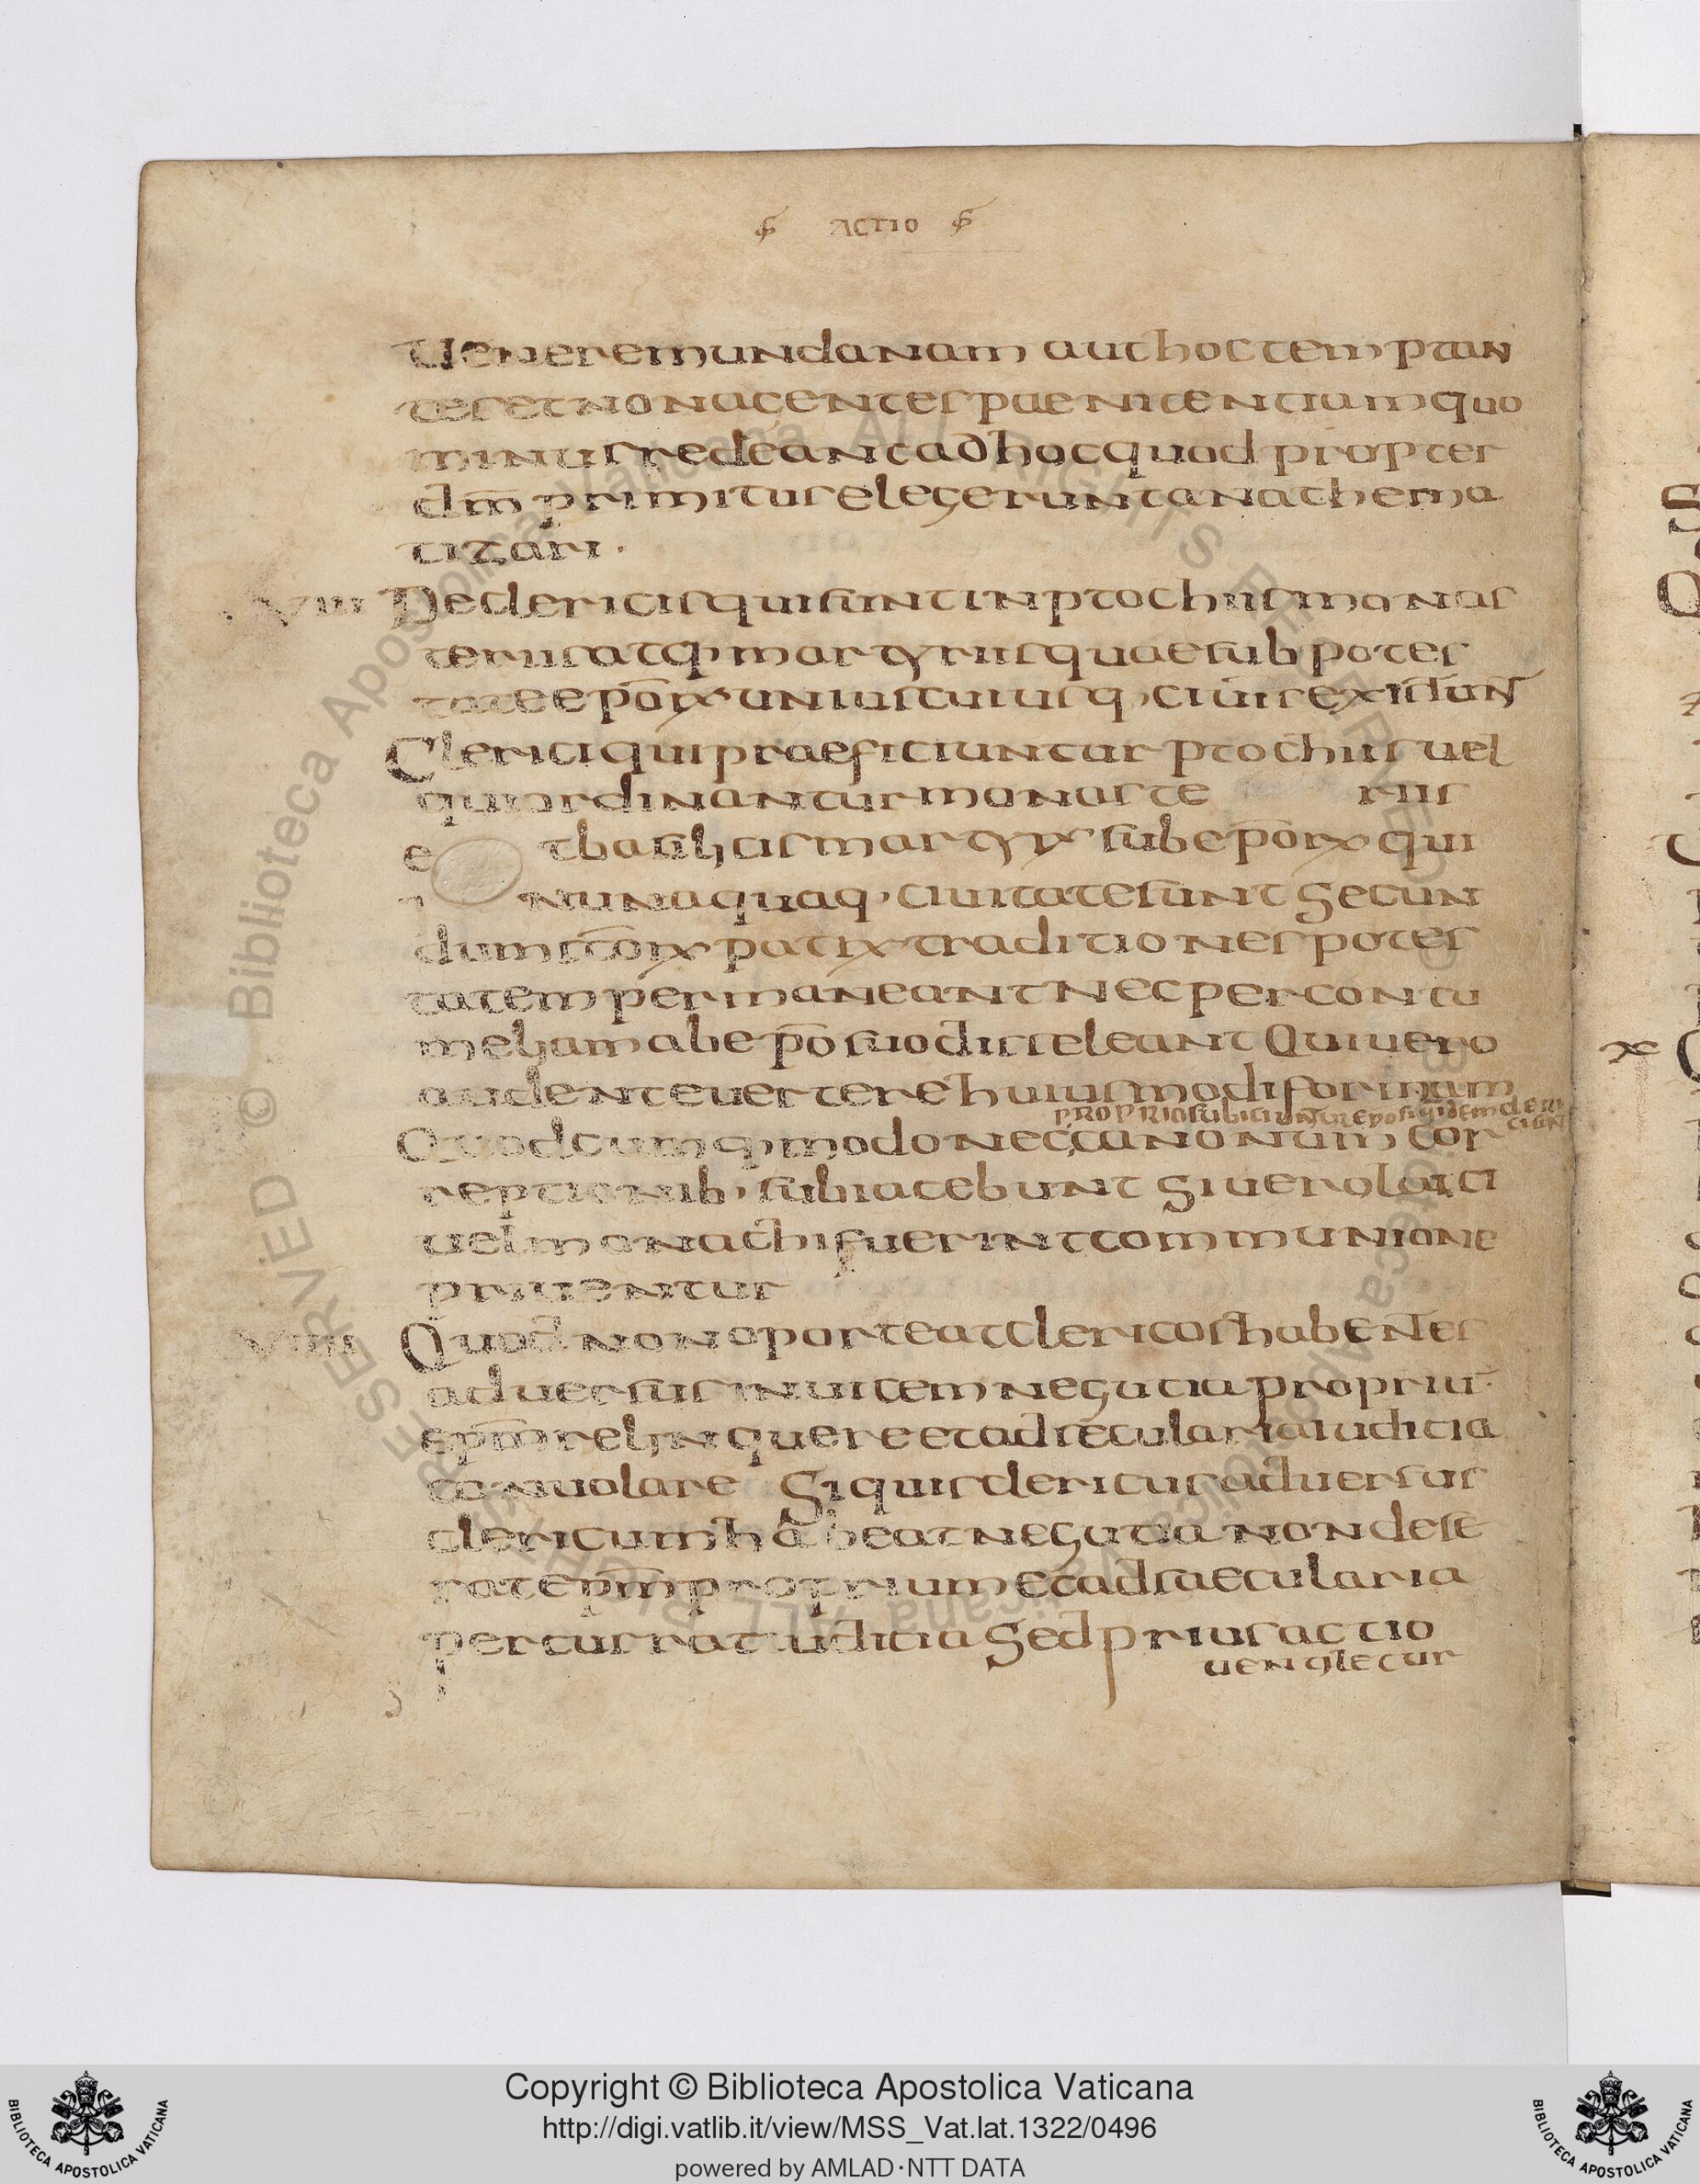 ACTIO
uenere mundanam aut hoc temptan
tes et non agentes paenitentiam quo
minus redeant ad hoc quod propter
dm̄ primitus elegerunt anathema
tizari·
VIII De clericis qui sunt in ptochiis monas
teriis atq· martyriis quae sub potes
tate epōrꝝ uniuscuiusq· ciuis existun̄
Clerici qui praeficiuntur ptochiis uel
qui ordinantur monaste riis
et basilicis martyrꝝ sub epōrꝝ qui
in unaquaq· ciuitate sunt Secun
dum scōrꝝ patrꝝ traditiones potes
tatem permaneant Nec per contu
meliam ab epō suo dissileant Qui uero
audent euertere huiusmodi formam
proprio subiciuntur epo siquidem cleri
ci sun
Quodcumq· modo nec canonum cor
reptionib· subiacebunt Si uero laici
uel monachi fuerint communione
priuentur
VIIII Quod non oporteat clericos habentes
aduersus inuicem negutia propriū
epm̄ relinquere et ad secularia iuditia
conuolare Si quis clericus aduersus
clericum habeat negutia non dese
rat epm̄ proprium et ad saecularia
percurrat iuditia Sed prius actio
uentiletur
Copyright © Biblioteca Apostolica Vaticana
http://digi.vatlib.it/view/MSS_Vat.lat.1322/0496
powered by AMLAD·NTT DATA
BIBLIOTECA APOSTOLICA VATICANA
BIBLIOTECA APOSTOLICA VATICANA
© Biblioteca Apostolica Vaticana ALL RIGHTS RESERVED
© Biblioteca Apostolica Vaticana ALL RIGHTS RESERVED